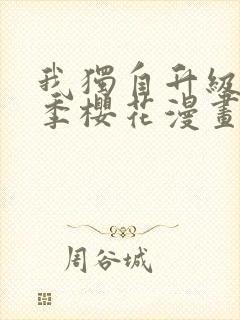 我獨自升級
季櫻花漫畫
周谷城